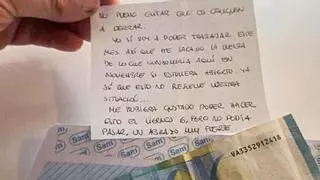 NO PUEDO EVITAR QUE OS OBLIGUEN
A CERRAR.
YO SÍ VOY A PODER TRABAJAR ESTE
MES. ASÍ QUE HE SACADO LA CUENTA
DE LO QUE CONSUMIRÍA AQUÍ EN
NOVIEMBRE SI ESTUVIERA ABIERTO. YA
SÉ QUE ESTO NO RESUELVE VUESTRA
SITUACIÓN...
ME HUBIERA GUSTADO PODER HACER
ESTO EL VIERNES 6, PERO NO PODÍA
PASAR. UN ABRAZO MUY FUERTE
Sami
Sami
Sami
VA3352912618